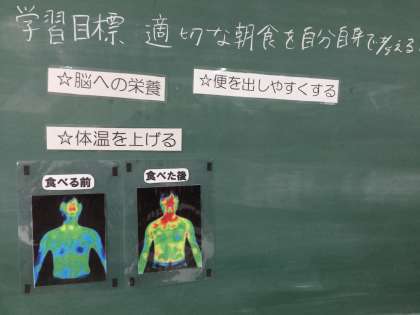 学習目標 適切な朝食を自分自身で考える。
☆脳への栄養
☆便を出しやすくする
☆体温を上げる
食べる前
食べた後